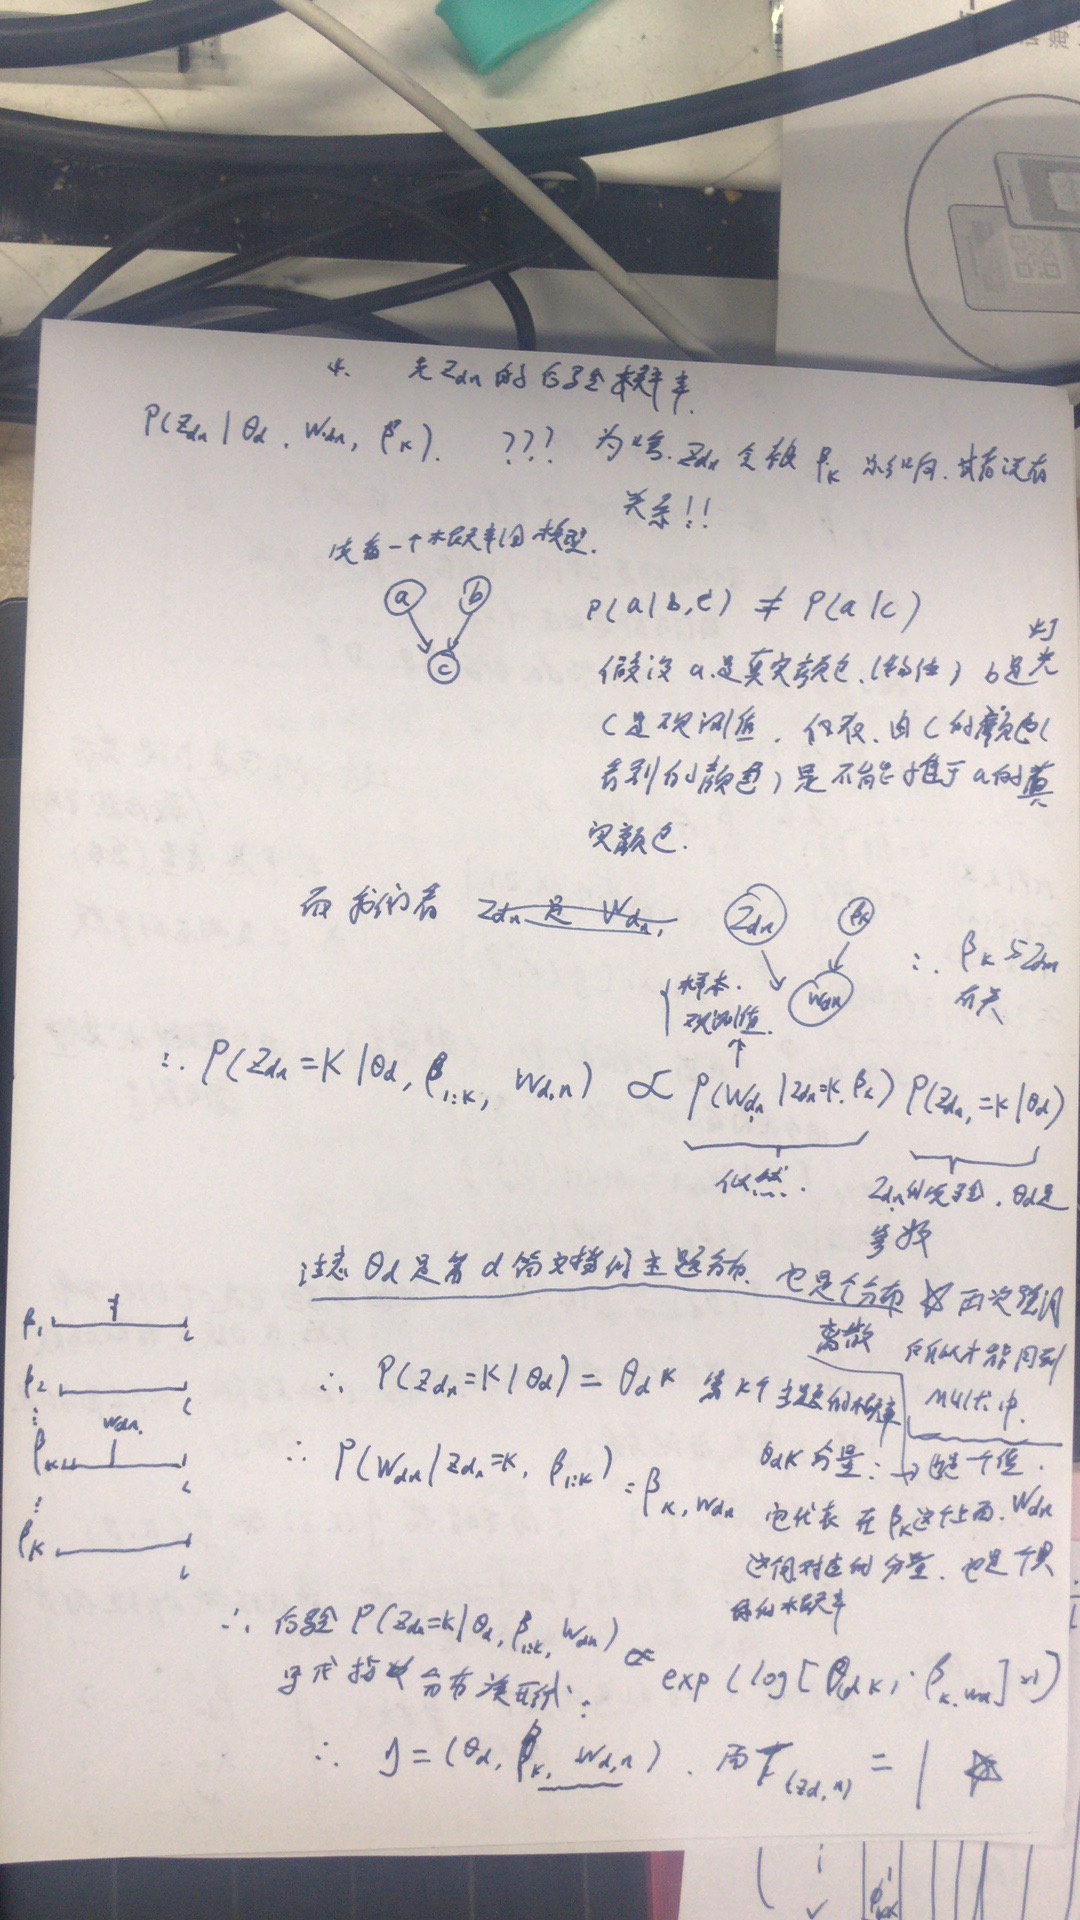 4. 先Zdn的后验概率.
P(Zdn | θd, Wdn, βK). ??? 为啥 Zdn 会被 βK 影响, 或者说有
关系!!
先看一个概率图模型.
a b
c
P(a|b,c) ≠ P(a|c)
假设 a 是真实颜色, (物体) b是灯光
C是观测值. 仅仅由C的颜色(
看到的颜色)是不能推于a的真
实颜色.
而我们看 Zdn 是 Wdn,
Zdn βK
Wdn
∴ βK与Zdn
有关
样本.
观测值.
∴ P(Zdn=K|θd, β1:K, Wd,n) ∝ P(Wdn|Zdn=K, βK) P(Zdn=K|θd)
似然.
Zdn的先验. θd是
参数
注意 θd 是第 d 篇文档的主题分布. 也是个分布 ☆ 两次强调
离散 所以才能用到
Mult中.
∴ P(Zdn=K|θd) = θdK 第K个主题的概率
θdK 分量: → 是一个值.
β1
β2
⋮
βK Wdn.
⋮
βK
∴ P(Wdn|Zdn=K, β1:K) = βK,Wdn 它代表 在βK这个上面, Wdn
这词对应的分量. 也是个具
体的概率
∴ 后验 P(Zdn=K|θd, β1:K, Wdn) ∝ exp(log[θdK · βK,Wdn] ×1)
写成指数分布族形式:
∴ η = (θd, βK, Wd,n). 而 T(Zd,n) = 1 ☆